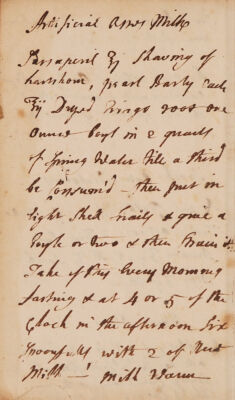 Artificial Asses Milk
Sassaperil ℥j Shaving of
hartshorn, pearl Barly Each
℥ij Dryed Eringo root one
ounce boyl in 2 quarts
of Spring Water till a third
be Consum'd - then put in
Eight Shell Snails & give a
boyle or two & then Strain it
Take of this Every Morning
fasting & at 4 or 5 of the
Clock in the afternoon Six
Spoonfulls with 2 of New
Milk - Milk Warm